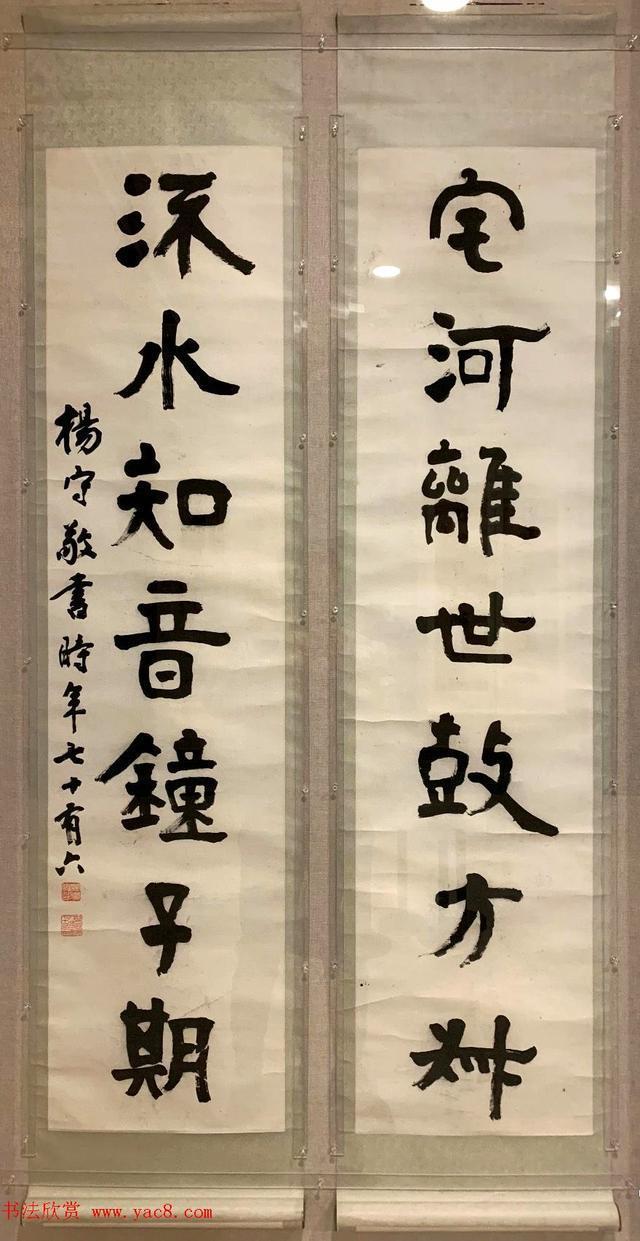 宅河離世鼓方叔
流水知音鐘子期
楊守敬書時年七十有六
书法欣赏 www.yac8.com